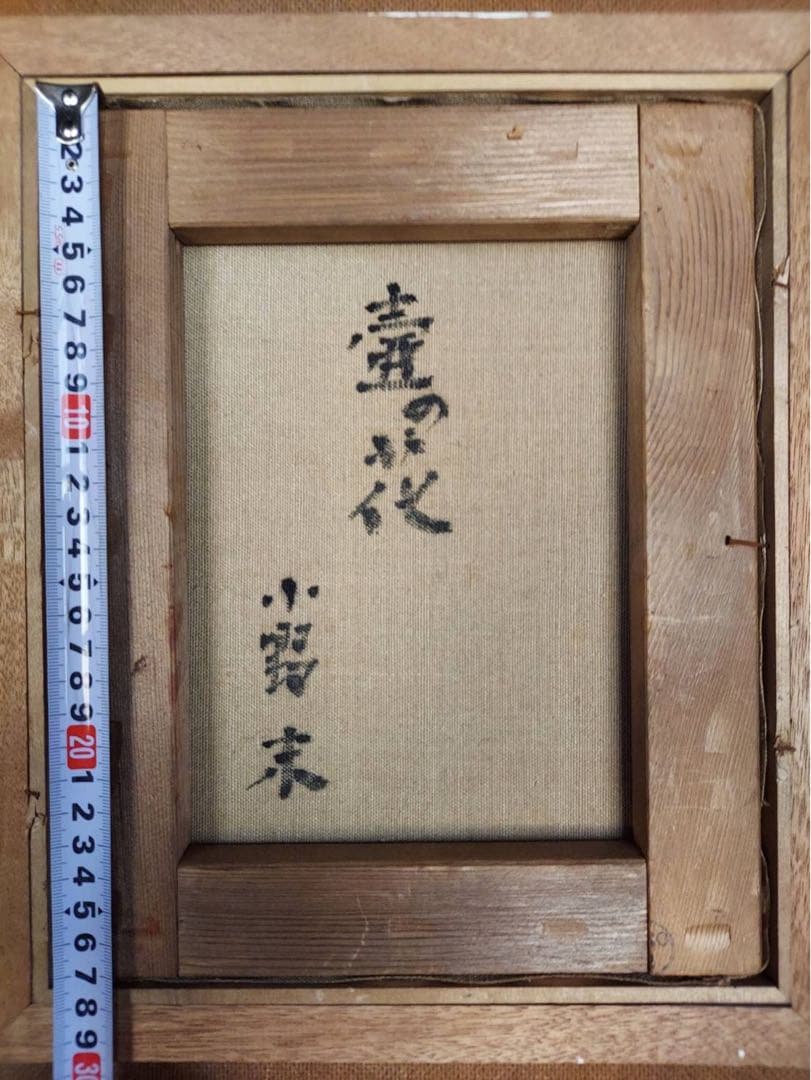 壷の花
小野末
2 3 4 5 6 7 8 9 10 1 2 3 4 5 6 7 8 9 20 1 2 3 4 5 6 7 8 9 30